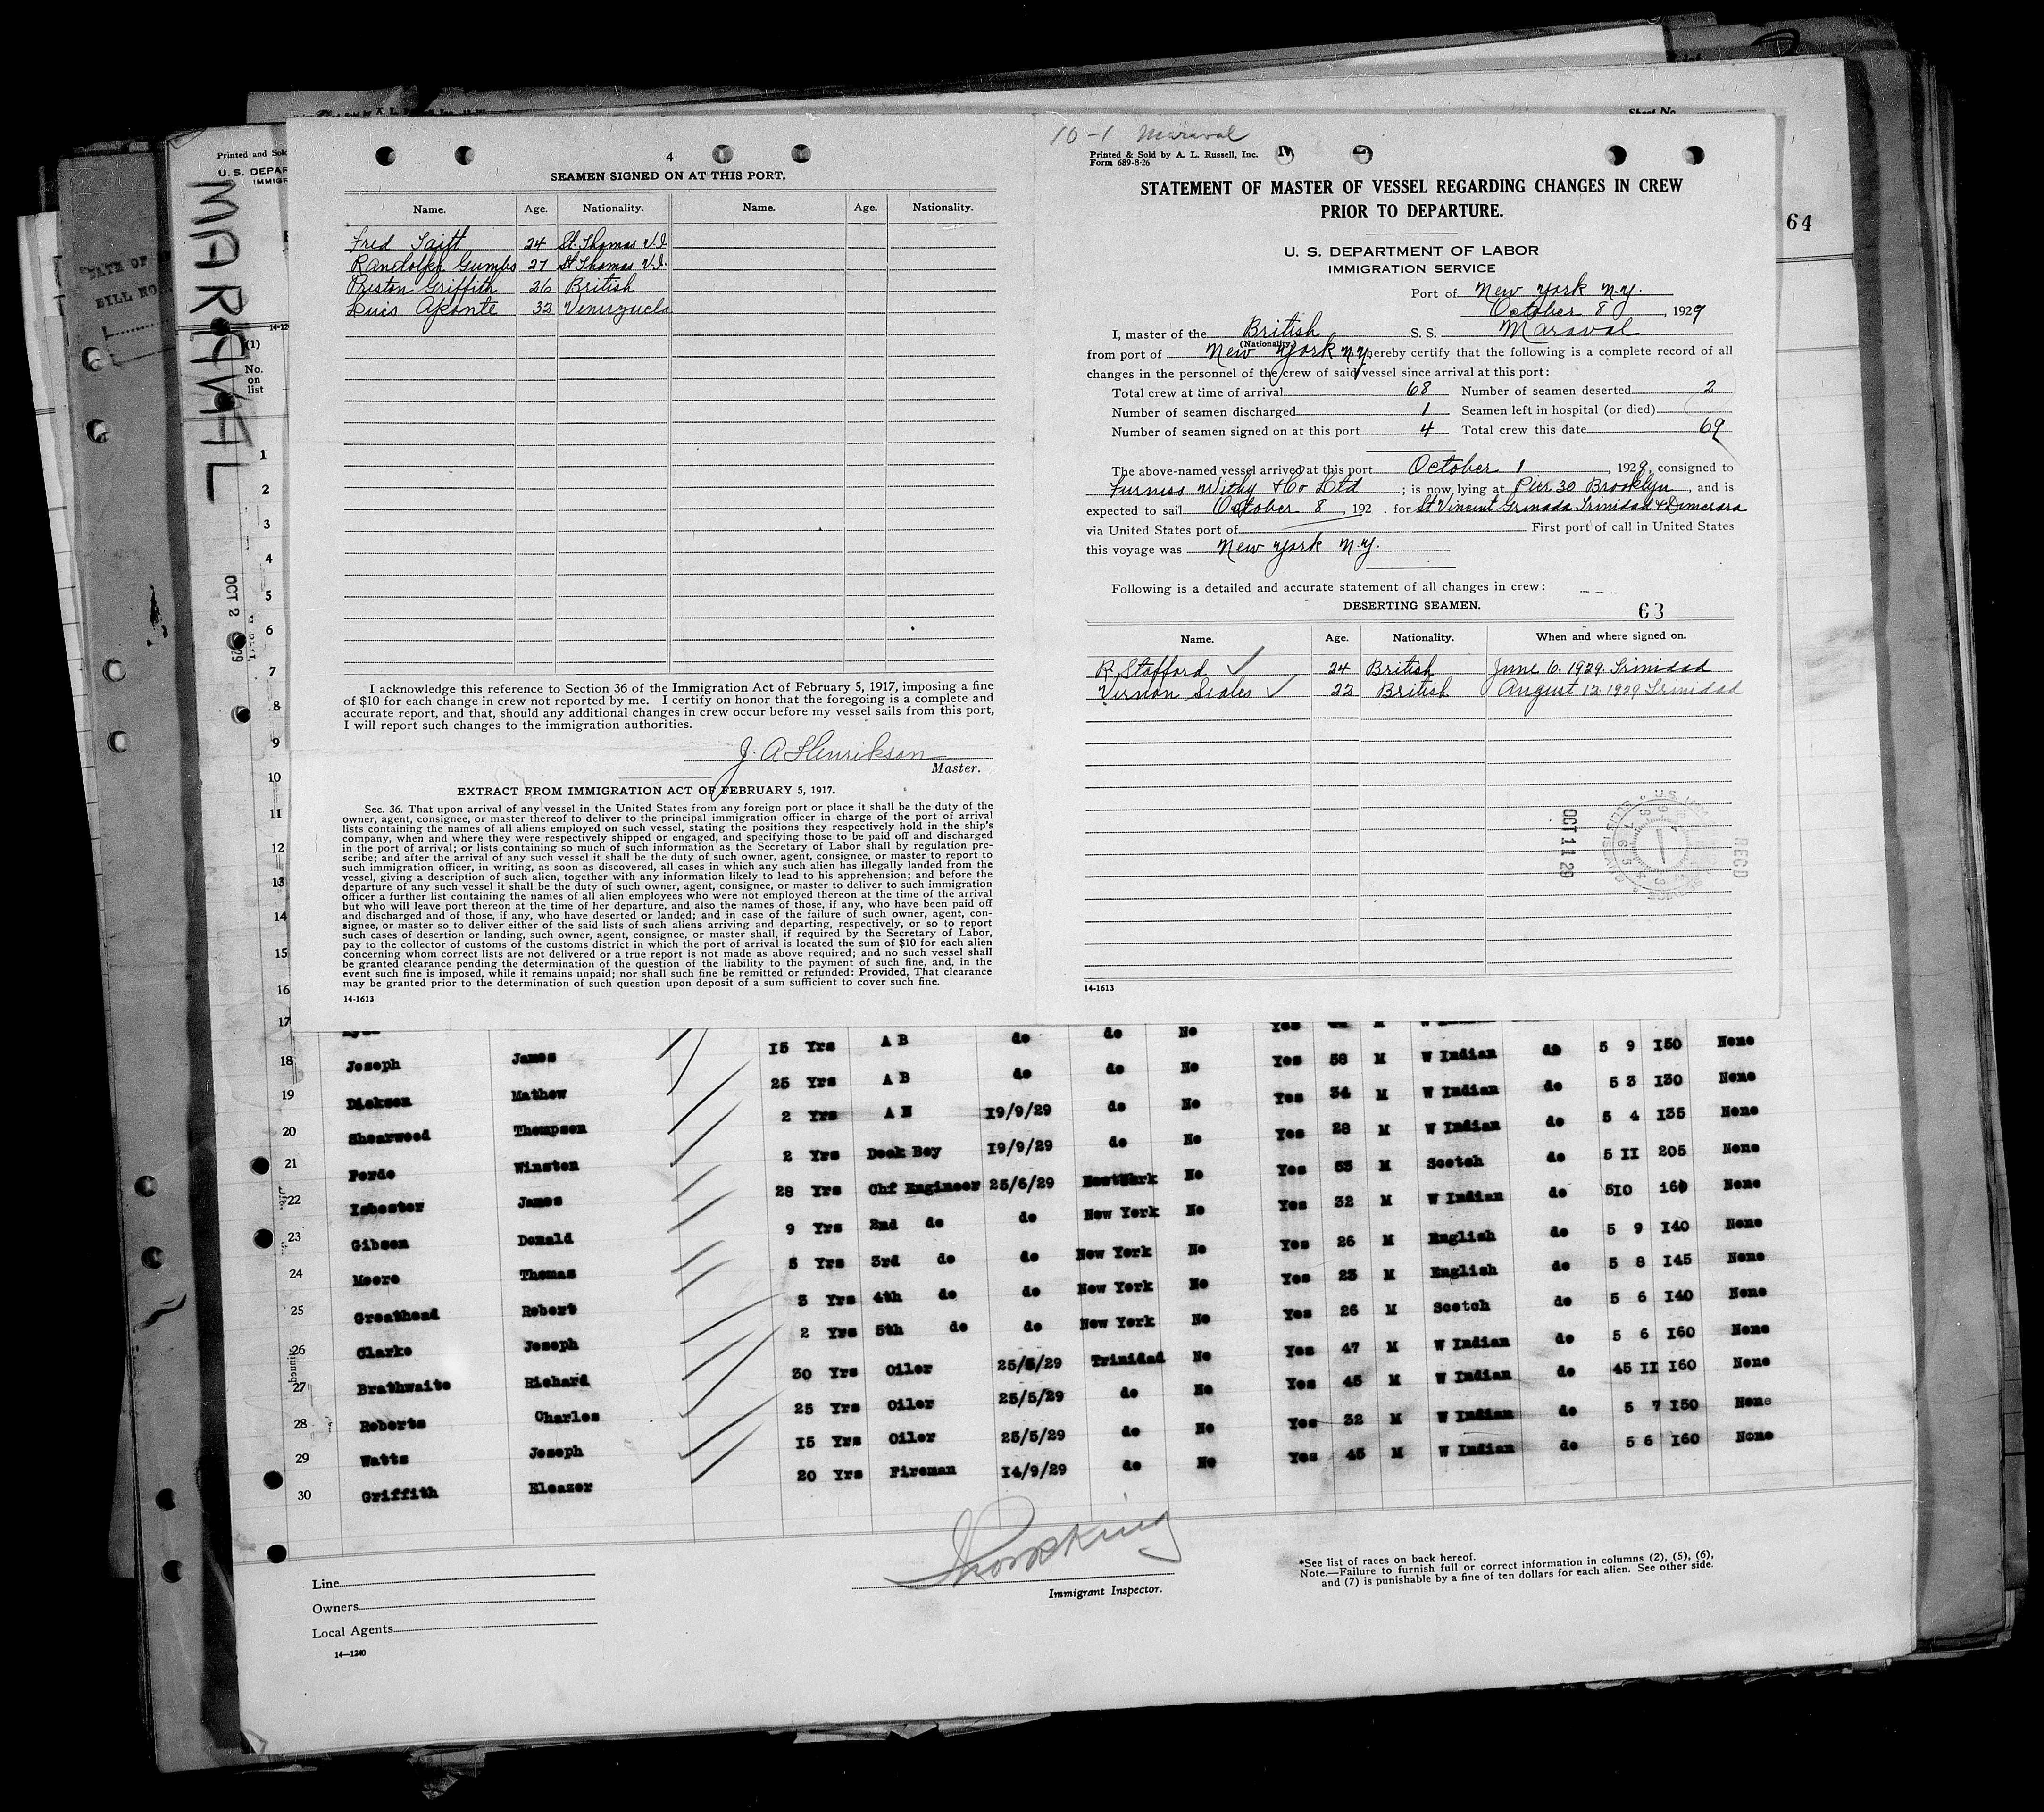 Sheet No.
Printed and Sold
U. S. DEPAR
IMMIGR
MARAVAL
DATE OF
BILL NO.
64
(1)
No.
on
list
OCT 2 29
4
SEAMEN SIGNED ON AT THIS PORT.
Name. Age. Nationality. Name. Age. Nationality.
Fred 24 St. Thomas V.I.
Randolph Gumbs 27 St. Thomas V.I.
Preston Griffith 26 British
Luis Aponte 32 Venezuela
I acknowledge this reference to Section 36 of the Immigration Act of February 5, 1917, imposing a fine
of $10 for each change in crew not reported by me. I certify on honor that the foregoing is a complete and
accurate report, and that, should any additional changes in crew occur before my vessel sails from this port,
I will report such changes to the immigration authorities.
J. A Henrikson
Master.
EXTRACT FROM IMMIGRATION ACT OF FEBRUARY 5, 1917.
Sec. 36. That upon arrival of any vessel in the United States from any foreign port or place it shall be the duty of the
owner, agent, consignee, or master thereof to deliver to the principal immigration officer in charge of the port of arrival
lists containing the names of all aliens employed on such vessel, stating the positions they respectively hold in the ship's
company, when and where they were respectively shipped or engaged, and specifying those to be paid off and discharged
in the port of arrival; or lists containing so much of such information as the Secretary of Labor shall by regulation pre-
scribe; and after the arrival of any such vessel it shall be the duty of such owner, agent, consignee, or master to report to
such immigration officer, in writing, as soon as discovered, all cases in which any such alien has illegally landed from the
vessel, giving a description of such alien, together with any information likely to lead to his apprehension; and before the
departure of any such vessel it shall be the duty of such owner, agent, consignee, or master to deliver to such immigration
officer a further list containing the names of all alien employees who were not employed thereon at the time of the arrival
but who will leave port thereon at the time of her departure, and also the names of those, if any, who have been paid off
and discharged and of those, if any, who have deserted or landed; and in case of the failure of such owner, agent, con-
signee, or master so to deliver either of the said lists of such aliens arriving and departing, respectively, or so to report
such cases of desertion or landing, such owner, agent, consignee, or master shall, if required by the Secretary of Labor,
pay to the collector of customs of the customs district in which the port of arrival is located the sum of $10 for each alien
concerning whom correct lists are not delivered or a true report is not made as above required; and no such vessel shall
be granted clearance pending the determination of the question of the liability to the payment of such fine, and, in the
event such fine is imposed, while it remains unpaid; nor shall such fine be remitted or refunded: Provided, That clearance
may be granted prior to the determination of such question upon deposit of a sum sufficient to cover such fine.
14-1613
10-1 Maraval
Printed & Sold by A. L. Russell, Inc.
Form 689-8-26
STATEMENT OF MASTER OF VESSEL REGARDING CHANGES IN CREW
PRIOR TO DEPARTURE.
U. S. DEPARTMENT OF LABOR
IMMIGRATION SERVICE
Port of New York N.Y.
October 8, 1929
I, master of the British S. S. Maraval
(Nationality)
from port of New York N.Y. hereby certify that the following is a complete record of all
changes in the personnel of the crew of said vessel since arrival at this port:
Total crew at time of arrival 68 Number of seamen deserted 2
Number of seamen discharged 1 Seamen left in hospital (or died)
Number of seamen signed on at this port 4 Total crew this date 69
The above-named vessel arrived at this port October 1, 1929, consigned to
Furness Withy & Co Ltd; is now lying at Pier 30 Brooklyn, and is
expected to sail October 8, 192 . for St Vincent Grenada Trinidad & Demerara
via United States port of First port of call in United States
this voyage was New York N.Y.
Following is a detailed and accurate statement of all changes in crew:
DESERTING SEAMEN. 63
Name. Age. Nationality. When and where signed on.
R. Stafford ✓ 24 British June 6. 1929. Trinidad
Vernon Seales ✓ 22 British August 12. 1929 Trinidad
OCT 11 29
RECD
14-1613
1
2
3
4
5
6
7
8
9
10
11
12
13
14
15
16
17
18 Joseph James 15 Yrs A B do do No Yes 58 M W Indian do 5 9 150 None
19 Dickson Mathew 25 Yrs A B do do No Yes 34 M W Indian do 5 3 130 None
20 Shearwood Thompson 2 Yrs 19/9/29 do No Yes 28 M W Indian do 5 4 135 None
21 Forde Winston 2 Yrs Deck Boy 19/9/29 do No Yes 55 M Scotch do 5 11 205 None
22 Isbester James 28 Yrs Chf Engineer 25/6/29 No Yes 32 M W Indian do 510 160 None
23 Gibson Donald 9 Yrs 2nd do do New York No Yes 26 M English do 5 9 140 None
24 Moore Thomas 5 Yrs 3rd do do New York No Yes 23 M English do 5 8 145 None
25 Greathead Robert 3 Yrs 4th do do New York No Yes 26 M Scotch do 5 6 140 None
26 Clarke Joseph 2 Yrs 5th do do New York No Yes 47 M W Indian do 5 6 160 None
27 Brathwaite Richard 30 Yrs Oiler 25/5/29 Trinidad No Yes 45 M W Indian do 45 11 160 None
28 Roberts Charles 25 Yrs Oiler 25/5/29 do No Yes 32 M W Indian do 5 7 150 None
29 Watts Joseph 15 Yrs Oiler 25/5/29 do No Yes 45 M W Indian do 5 6 160 None
30 Griffith Eleazer 20 Yrs Fireman 14/9/29 do No
Line
Owners
Local Agents
14—1240
Immigrant Inspector.
*See list of races on back hereof.
Note.—Failure to furnish full or correct information in columns (2), (5), (6),
and (7) is punishable by a fine of ten dollars for each alien. See other side.